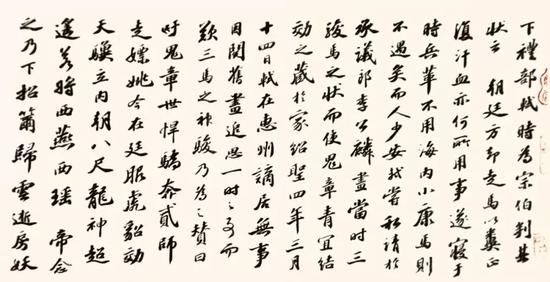 下禮部軾時為宗伯判其
状云 朝廷方却走馬以糞正
復汗血亦何所用事遂寢于
時兵革不用海内小康馬則
不遇矣而人少安軾嘗私請於
承議郎李公麟畫當時三
駿馬之状而使鬼章青宜結
効之藏於家紹聖四年三月
十四日軾在惠州謫居無事
因閱舊畫追思一時之事而
歎三馬之神駿乃為之賛曰
吁鬼章世悍驕奔貳師
走嫖姚今在廷服虎貂効
天驥立内朝八尺龍神超
遥若將西燕西瑶帝念
之乃下招簫歸雲逝房妖